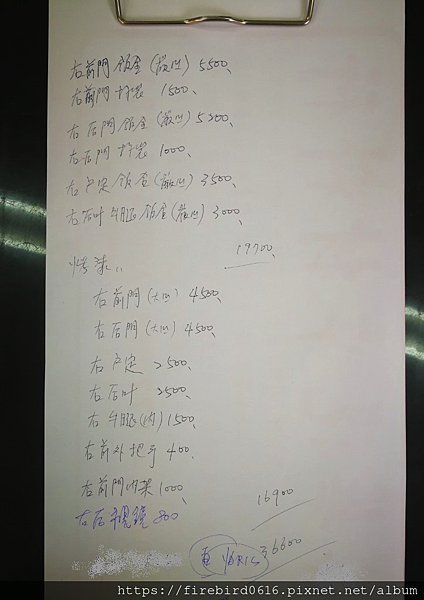 右前門 鈑金(嚴凹) 5500、
右前門 拆裝 1500、
右后門 鈑金(嚴凹) 5200、
右后門 拆裝 1000、
右戶定 鈑金(嚴凹) 3500、
右后叶 鈑金(嚴凹) 3000、
19700、
烤漆:
右前門(大凹) 4500、
右后門(大凹) 4500、
右戶定 2500、
右后叶 2500、
右 (內) 1500、
右前外把手 400、
右前門 1000、
右后視鏡 800
16900
YARIS 36600
https://firebird0616.pixnet.net/album